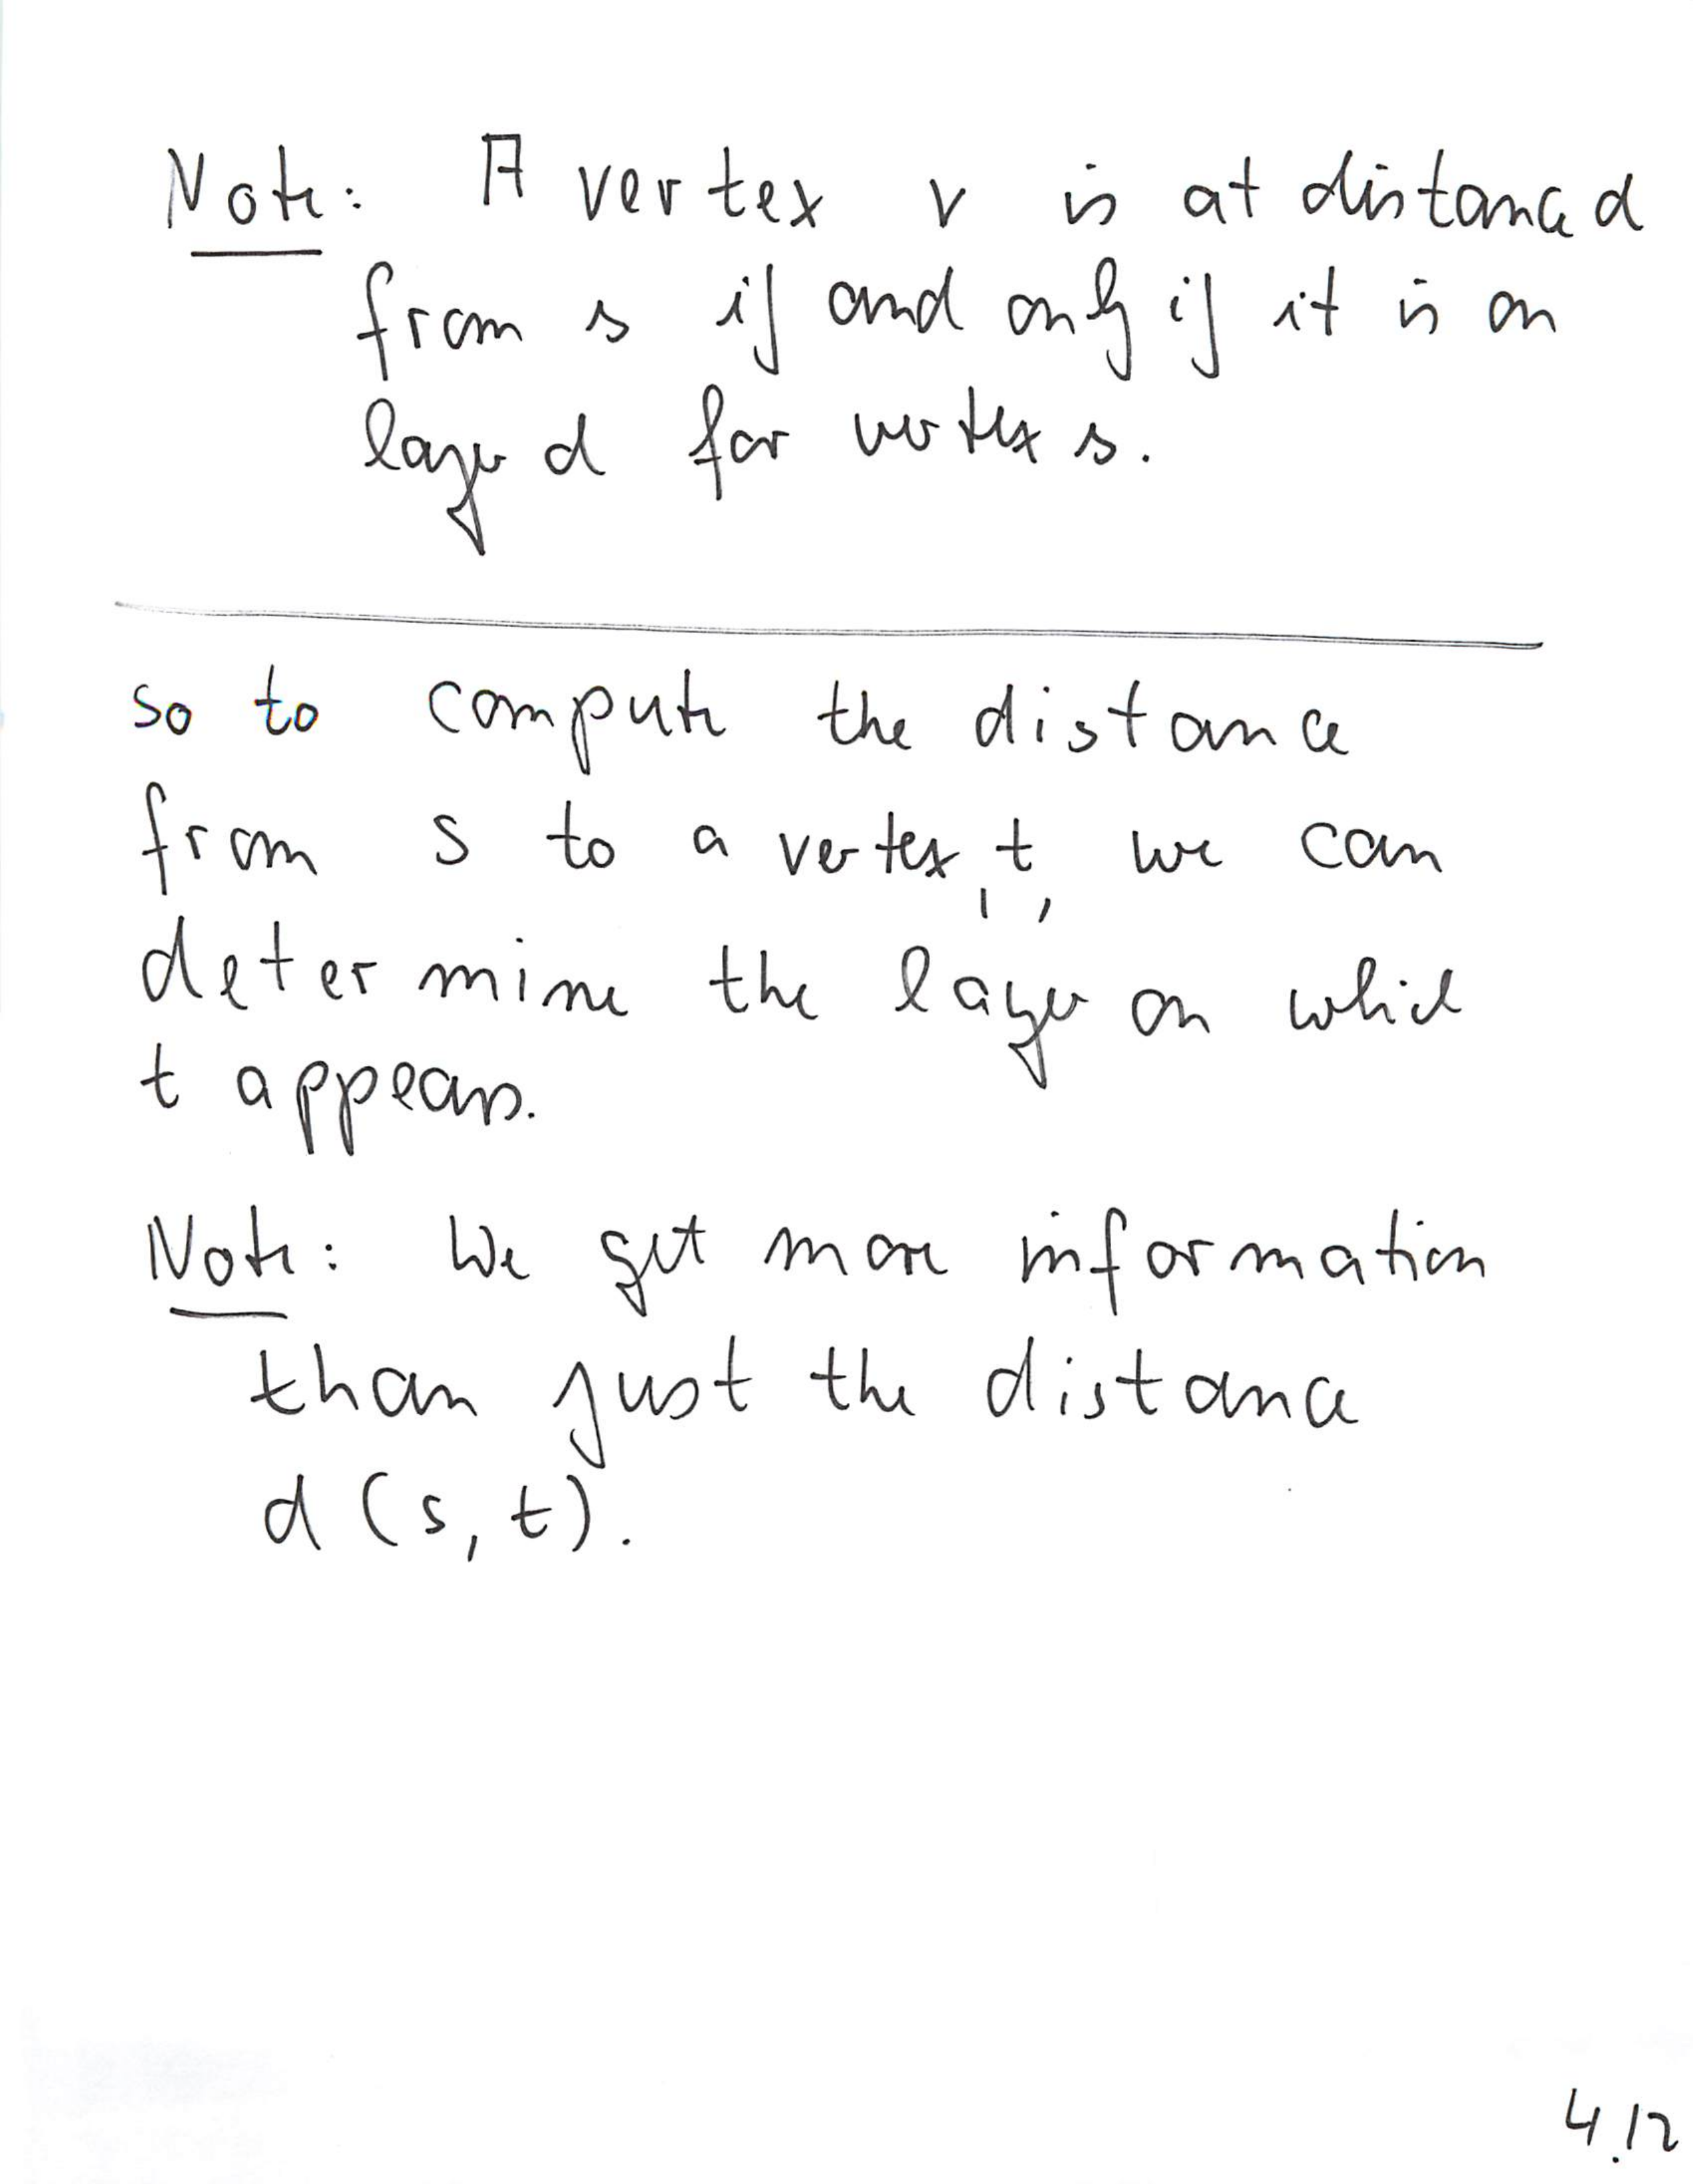 Note: A vertex v is at distance d
from s if and only if it is on
layer d for vertex s.
so to compute the distance
from s to a vertex, t, we can
determine the layer on which
t appears.
Note: We get more information
than just the distance
d (s, t).
4.12